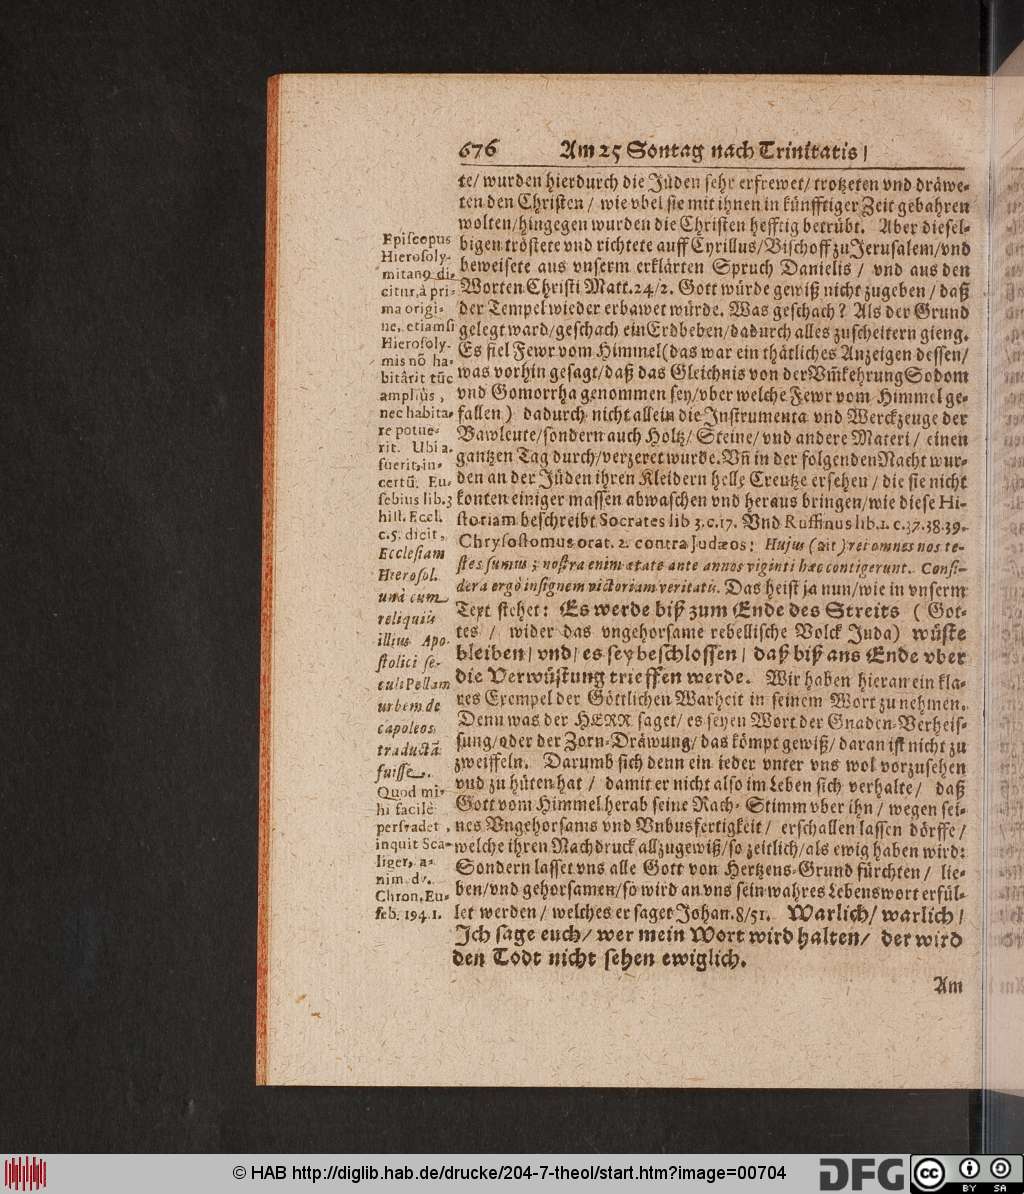 676 Am 25 Sontag nach Trinitatis/
te/ wurden hierdurch die Jüden sehr erfrewet/ trotzeten vnd dräwe-
ten den Christen / wie vbel sie mit ihnen in künfftiger Zeit gebahren
wolten/hingegen wurden die Christen hefftig betrübt. Aber diesel-
bigen tröstete vnd richtete auff Cyrillus/Bischoff zu Jerusalem/vnd
beweisete aus vnserm erklärten Spruch Danielis / vnd aus den
Worten Christi Matt.24/2. Gott würde gewiß nicht zugeben / daß
der Tempel wieder erbawet würde. Was geschach? Als der Grund
gelegt ward/geschach ein Erdbeben/dadurch alles zuscheitern gieng.
Es fiel Fewr vom Himmel (das war ein thätliches Anzeigen dessen/
was vorhin gesagt/daß das Gleichnis von der Vm̃kehrung Sodom
vnd Gomorrha genommen sey/vber welche Fewr vom Himmel ge-
fallen) dadurch nicht allein die Instrumenta vnd Werckzeuge der
Bawleute/sondern auch Holtz/ Steine/ vnd andere Materi/ einen
gantzen Tag durch/verzeret wurde. Vñ in der folgenden Nacht wur-
den an der Jüden ihren Kleidern helle Creutze ersehen / die sie nicht
konten einiger massen abwaschen vnd heraus bringen/wie diese Hi-
storiam beschreibt Socrates lib 3.c.17. Vnd Ruffinus lib.1. c.37.38.39.
Chrysostomus orat. 2. contra Judæos: Hujus (ait) rei omnes nos te-
stes sumus; nostra enim ætate ante annos viginti hæc contigerunt. Consi-
dera ergò insignem victoriam veritatis. Das heist ja nun/wie in vnserm
Text stehet: Es werde biß zum Ende des Streits ( Got-
tes / wider das vngehorsame rebellische Volck Juda) wüste
bleiben/ vnd/ es sey beschlossen/ daß biß ans Ende vber
die Verwüstung trieffen werde. Wir haben hieran ein kla-
res Exempel der Göttlichen Warheit in seinem Wort zu nehmen.
Denn was der HERR saget/ es seyen Wort der Gnaden-Verheis-
sung/oder der Zorn-Dräwung/ das kömpt gewiß/ daran ist nicht zu
zweiffeln. Darumb sich denn ein ieder vnter vns wol vorzusehen
vnd zu hüten hat / damit er nicht also im Leben sich verhalte/ daß
Gott vom Himmel herab seine Rach-Stimm vber ihn / wegen sei-
nes Vngehorsams vnd Vnbusfertigkeit / erschallen lassen dörffe/
welche ihren Nachdruck allzugewiß/so zeitlich/als ewig haben wird:
Sondern lasset vns alle Gott von Hertzens-Grund fürchten / lie-
ben/vnd gehorsamen/so wird an vns sein wahres Lebenswort erfül-
let werden / welches er saget Johan.8/51. Warlich/ warlich/
Ich sage euch/ wer mein Wort wird halten/ der wird
den Todt nicht sehen ewiglich.
Am
Episcopus
Hierosoly-
mitanꝰ di-
citur, à pri-
ma origi-
ne, etiamsi
Hierosoly-
mis nõ ha-
bitârit tũc
ampliùs,
nec habita-
re potue-
rit. Ubi a.
fuerit, in-
certũ. Eu-
sebius lib.3
hist. Eccl.
c.5. dicit,
Ecclesiam
Hierosol.
unà cum
reliquiis
illius Apo
stolici se-
culi Pellam
urbem de
capoleos
traductã
fuisse.
Quod mi-
hi facilè
persvadet,
inquit Sca-
liger, a-
nim. d.
Chron. Eu-
seb. 194.1.
© HAB http://diglib.hab.de/drucke/204-7-theol/start.htm?image=00704
DFG
cc BY SA